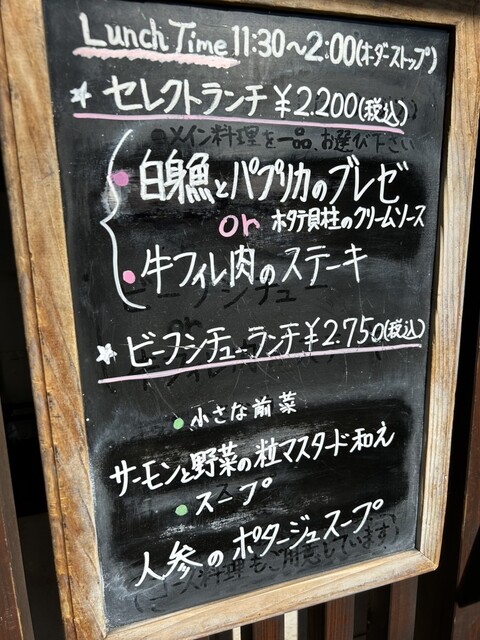 Lunch Time 11:30〜2:00(オーダーストップ)
☆ セレクトランチ ¥2.200(税込)
●メイン料理を一品、お選び下さい
白身魚とパプリカのブレゼ
or ホタテ貝柱のクリームソース
牛フィレ肉のステーキ
☆ ビーフシチューランチ ¥2.750(税込)
小さな前菜
サーモンと野菜の粒マスタード和え
スープ
人参のポタージュスープ